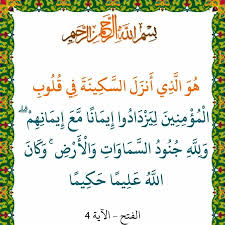 بسم الله الرحمن الرحيم
هُوَ الَّذِي أَنزَلَ السَّكِينَةَ فِي قُلُوبِ
الْمُؤْمِنِينَ لِيَزْدَادُوا إِيمَانًا مَّعَ إِيمَانِهِمْ ۗ
وَلِلَّهِ جُنُودُ السَّمَاوَاتِ وَالْأَرْضِ ۚ وَكَانَ
اللَّهُ عَلِيمًا حَكِيمًا
الفتح - الآية 4